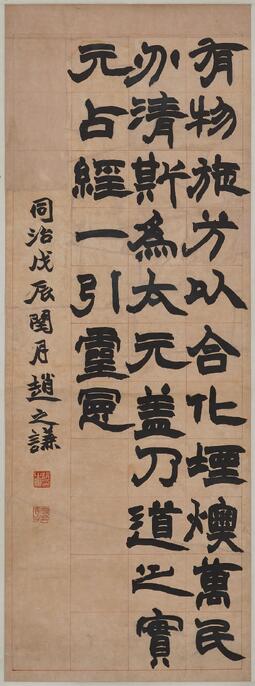 有物施方以合化堙燠萬民
清斯為太元蓋乃道之實
元占經一引靈
同治戊辰閏月趙之謙